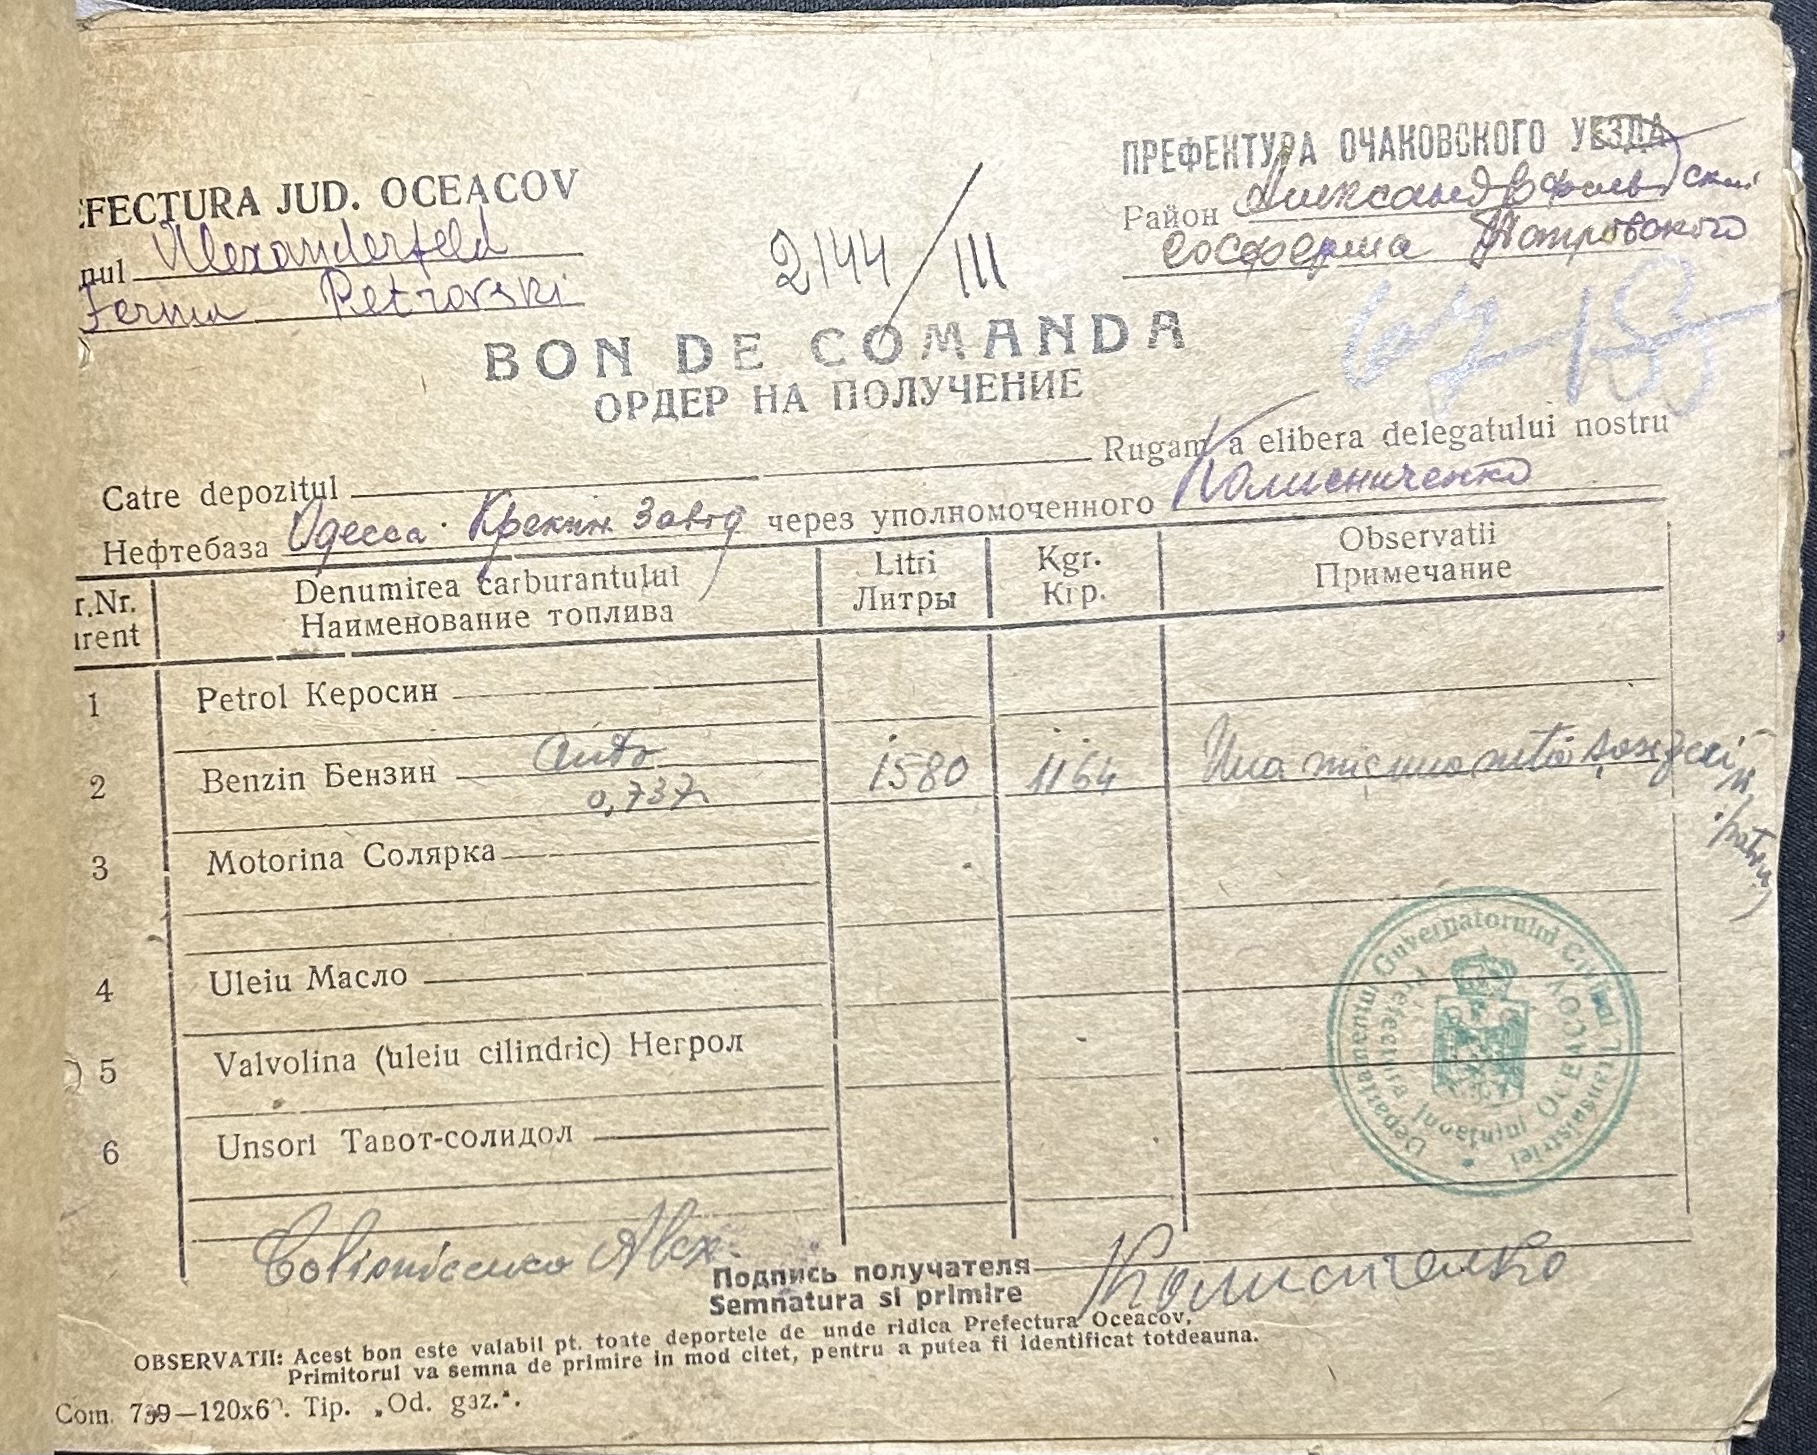 FECTURA JUD. OCEACOV
nul Alexanderfeld
Ferma Petrovski
2144/III
ПРЕФЕКТУРА ОЧАКОВСКОГО УЕЗДА
Район Александрфельдский
госферма Петровского
BON DE COMANDA
ОРДЕР НА ПОЛУЧЕНИЕ
Catre depozitul Rugam a elibera delegatului nostru
Нефтебаза Одесса Крекин завод через уполномоченного Колисниченко
r.Nr.
urent
Denumirea carburantului
Наименование топлива
Litri
Литры
Kgr.
Кгр.
Observatii
Примечание
1 Petrol Керосин
2 Benzin Бензин auto 1580 1164 Una mie una sută șasezeci
0,737
și patru
3 Motorina Солярка
4 Uleiu Масло
5 Valvolina (uleiu cilindric) Негрол
6 Unsori Тавот-солидол
Departamentul Guvernatorului Civil al Transnistriei
Prefectura Județului OCEACOV
Colisnicenco Alex.
Подпись получателя Колисниченко
Semnatura si primire
OBSERVATII: Acest bon este valabil pt. toate deportele de unde ridica Prefectura Oceacov,
Primitorul va semna de primire in mod citet, pentru a putea fi identificat totdeauna.
Com. 739—120x60. Tip. „Od. gaz.“.